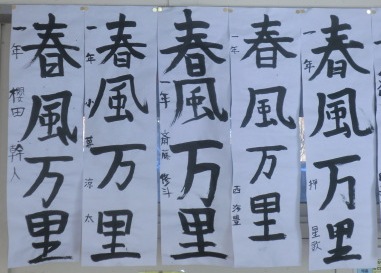 春風万里
一年 櫻田 幹人
春風万里
一年 小 涼太
春風万里
一年 斎藤 修斗
春風万里
一年 西 海里
春風万里
一年 押 星歌